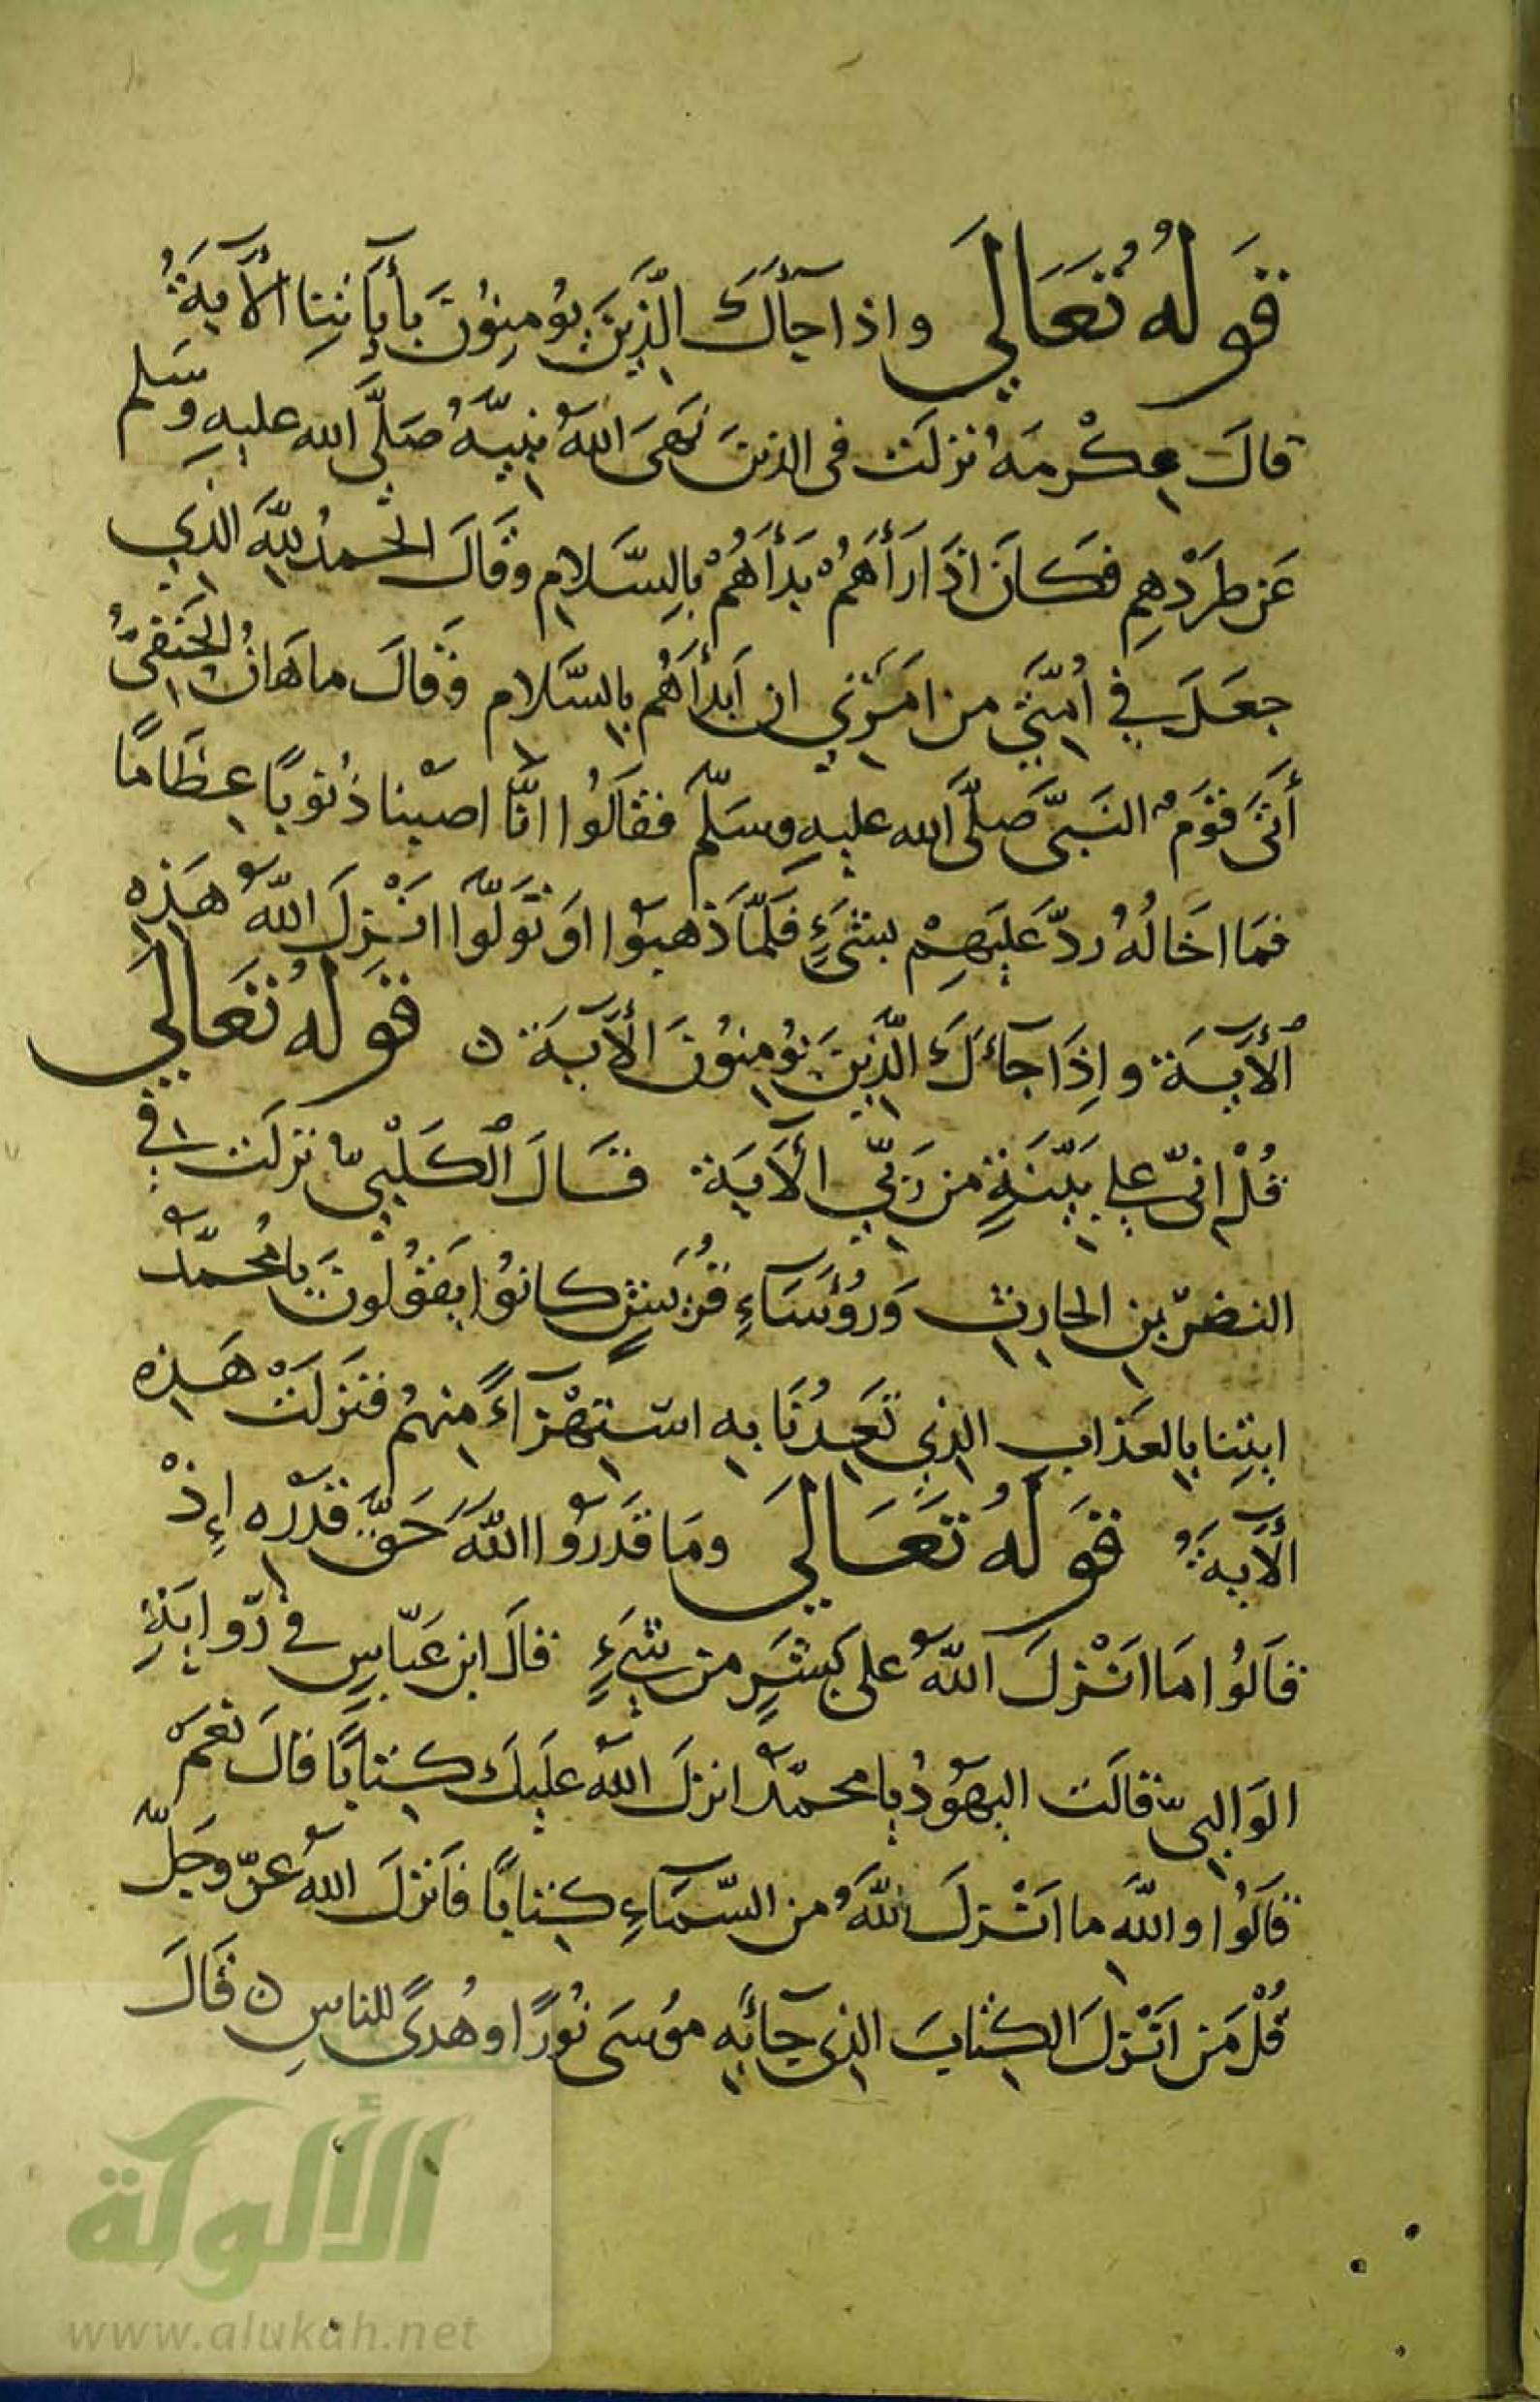 قَولُهُ تَعَالَى واذا جآأَكَ الَّذِينَ يُومِنُونَ بأَيَاتِنِا الْأَيَةُ
قالَ عِكْرمَهُ نزلَت فى الذينَ نَهىَ اللهُ نبِيَّهُ صَلَّى الله عليهِ وسَلم
عَن طَردْهِم فكَانَ اذَا رَأَهُمْ بَدأَهُمْ بالِسَّلامِ وقَالَ الحْمدُ لِلَّهِ الذِي
جعَلَ فِي أُمتَّيِ من امَرَنِي ان اَبدأَهُم بِالسَّلامِ وَقالَ ماهَانُ الحَنَفىُّ
أَتىَ قَوَمُ النَبىَّ صَلَّى الله عليهِ وسَلَّمَ فقالَوُا انَّا اصَبْنا ذُنوبًا عِظَامًا
فمَا اخَالُهُ ردَّ عَلَيهِمْ بشىَءٍ فَلَمَّا ذَهبوُا اوَ تَوَلَّوا انَزْلَ اللَّهُ هَذِهِ
الْأَيَةَ وإِذَا جآءَكَ الَّذِينَ يُومِنُونَ الْأَيَةَ ۞ قَولُهُ تَعَالَى
قُلْ انىِّ على بَيّنَةٍ من رَبّيِ الْأيَةَ قَالَ الكَلْبِيُّ نزلَت فِي
النضرّ بن الحارِث وَرُؤَسَاءِ قُرَيشٍ كانوُا يَقُولُونَ يا مُحمدُّ
ايتِنا بِالعَذابِ الذِي تَعِدُنَا بِهِ اسْتِهْزآءً مِنهمُ فنَزلَتْ هَذِهِ
الْأَيةُ قَولُهُ تَعَالَى ومَا قَدَروُا اللَّهَ حَقَّ قَدْرِه إِذْ
قَالوُا مَا انَزْلَ اللَّهُ على بَشَرٍ من شَيءٍ قالَ ابن عَبّاسٍ في رّوايَةِ
الوَالِبيّ قالَت اليهَوُدُ يا محمدُّ انزلَ اللَّهُ علَيكَ كِتابًا قالَ نعَمَ
قالَوُا واللَّهِ ما انَزْلَ اللَّهُ من السَّمآءِ كِتابًا فأنزلَ اللهُ عزّ وجَلّ
قُلْ مَن انَزْلَ الكِتابَ الذِى جآءَبِهِ مُوسَى نُورًا وهُدىً للناسِ ۞ قَالَ
الألوكة
www.alukah.net